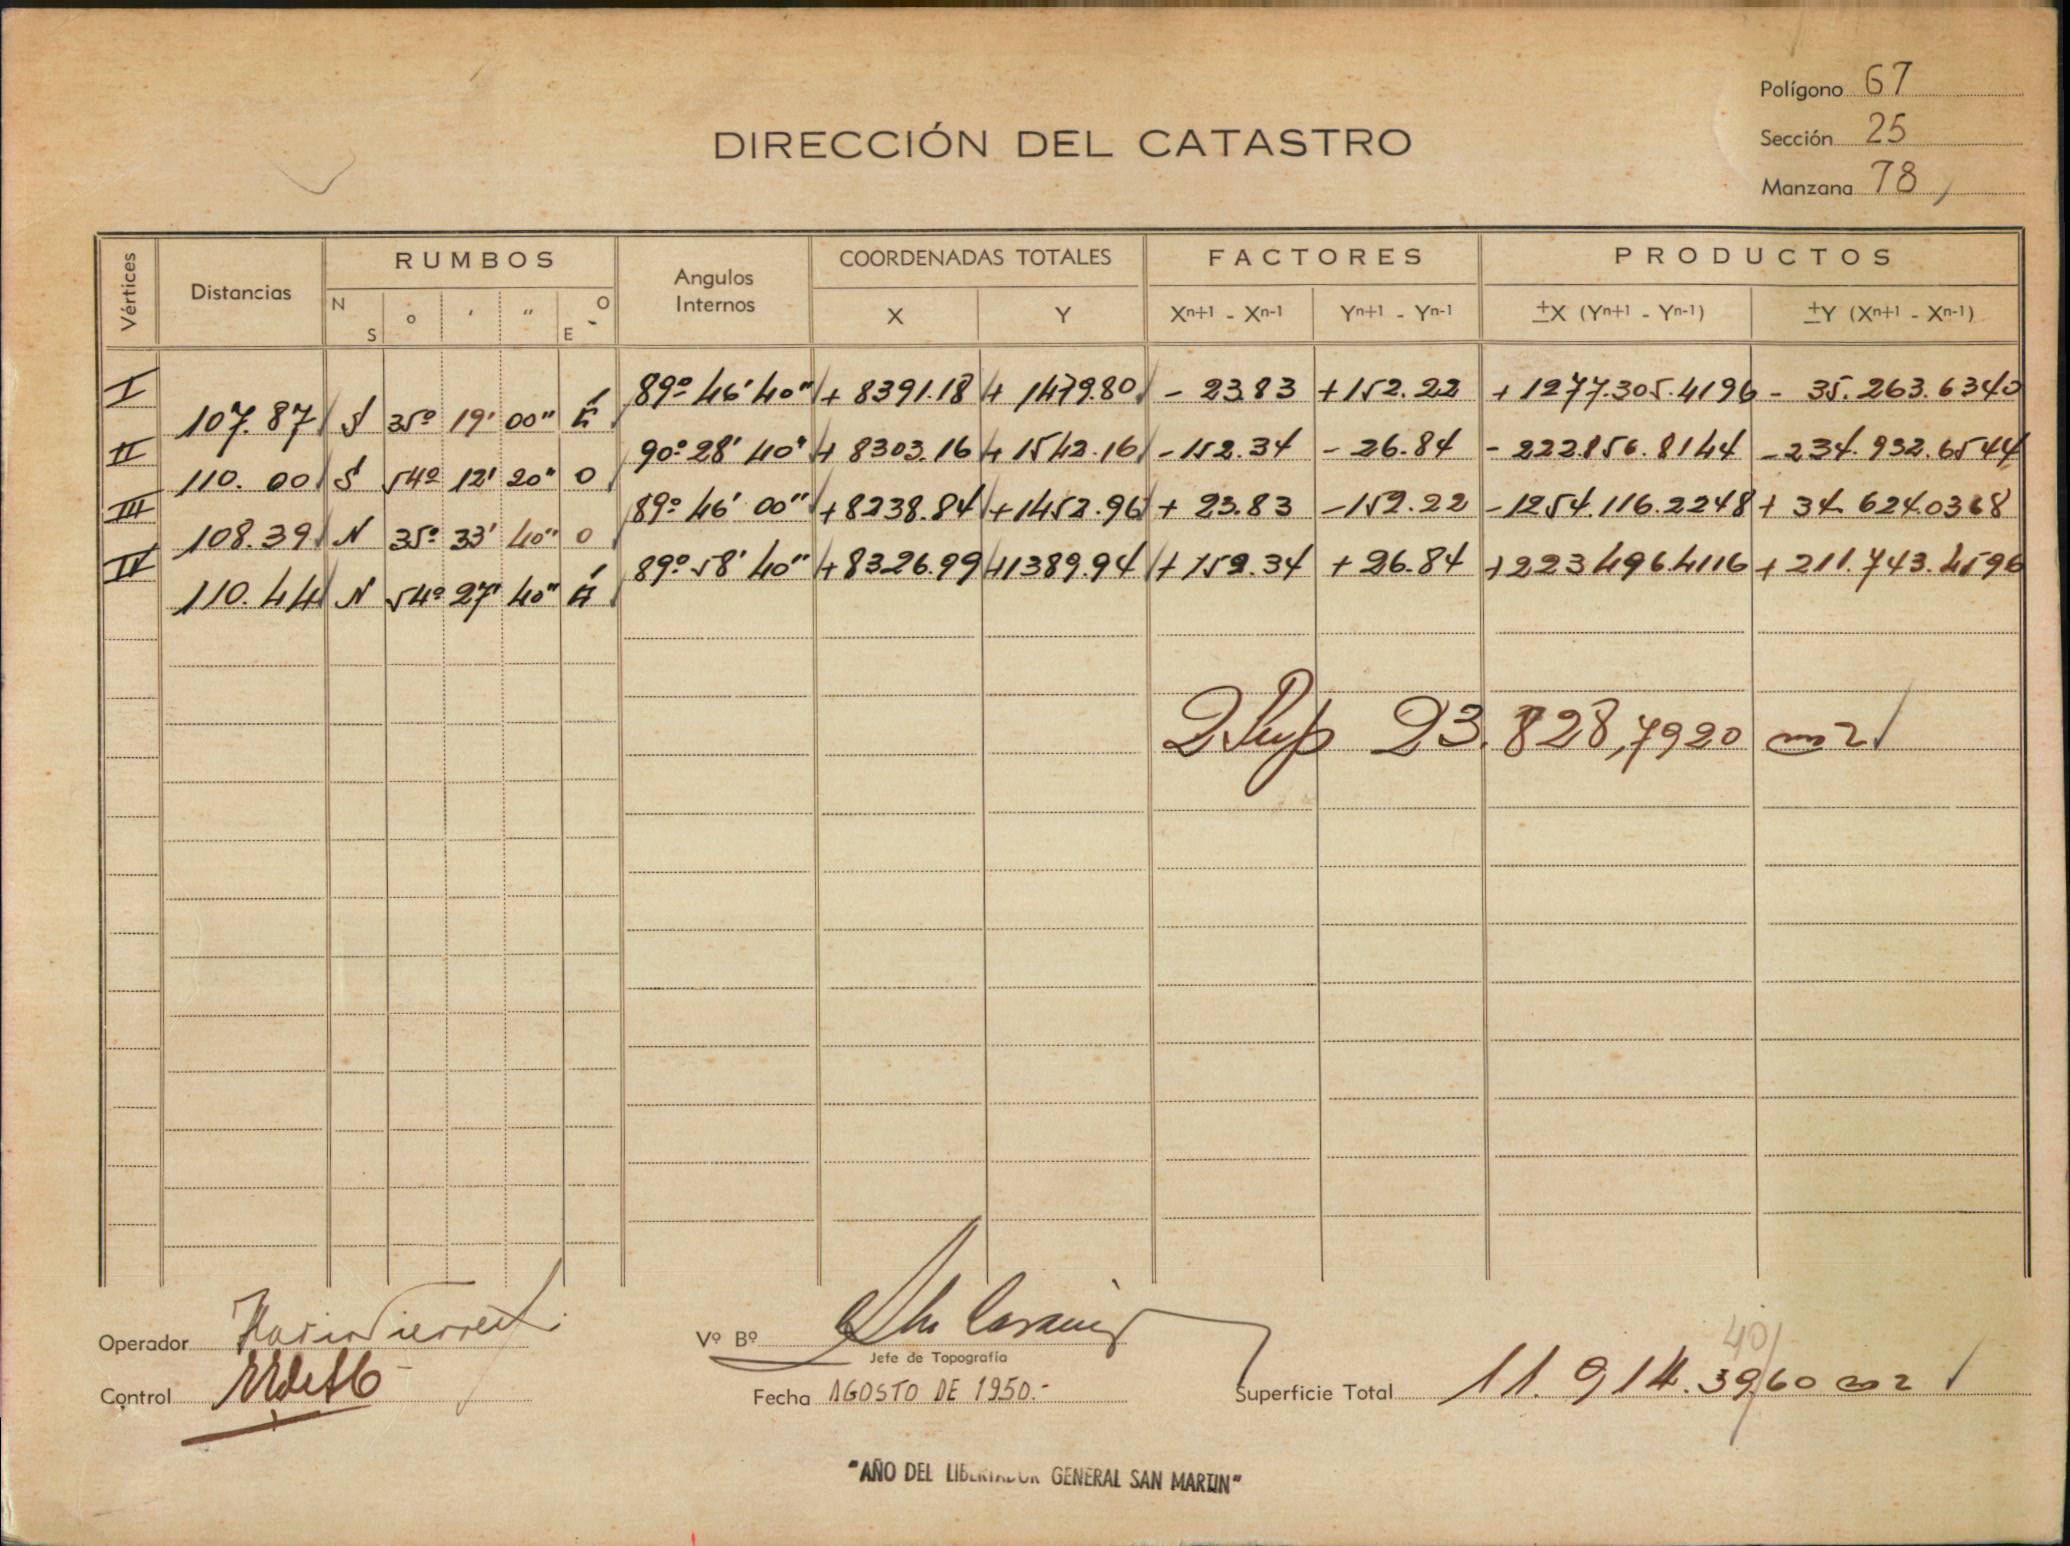 Polígono 67
DIRECCIÓN DEL CATASTRO
Sección 25
Manzana 78
Vértices Distancias RUMBOS Angulos Internos COORDENADAS TOTALES FACTORES PRODUCTOS
N S ° ' " O E X Y Xn+1 - Xn-1 Yn+1 - Yn-1 ±X (Yn+1 - Yn-1) ±Y (Xn+1 - Xn-1)
I 89º 46' 40" + 8391.18 + 1479.80 - 23.83 +152.22 + 1277.305.4196 - 35.263.6340
107.87 S 35º 19' 00" E
II 90º 28' 40" + 8303.16 + 1542.16 -152.34 - 26.84 - 222.856.8144 -234.932.6544
110.00 S 54º 12' 20" O
III 89º 46' 00" +8238.84 +1452.96 + 23.83 -152.22 -1254.116.2248 + 34.624.0368
108.39 N 35º 33' 40" O
IV 89º 58' 40" +8326.99 +1389.94 +152.34 + 26.84 +223.496.4116 + 211.743.4596
110.44 N 54º 27' 40" E
2 Sup 23.828,7920 m2
Operador
Vº Bº
Jefe de Topografía
40
Control
Fecha AGOSTO DE 1950.-
Superficie Total 11.914.3960 m2
"AÑO DEL LIBERTADOR GENERAL SAN MARTIN"